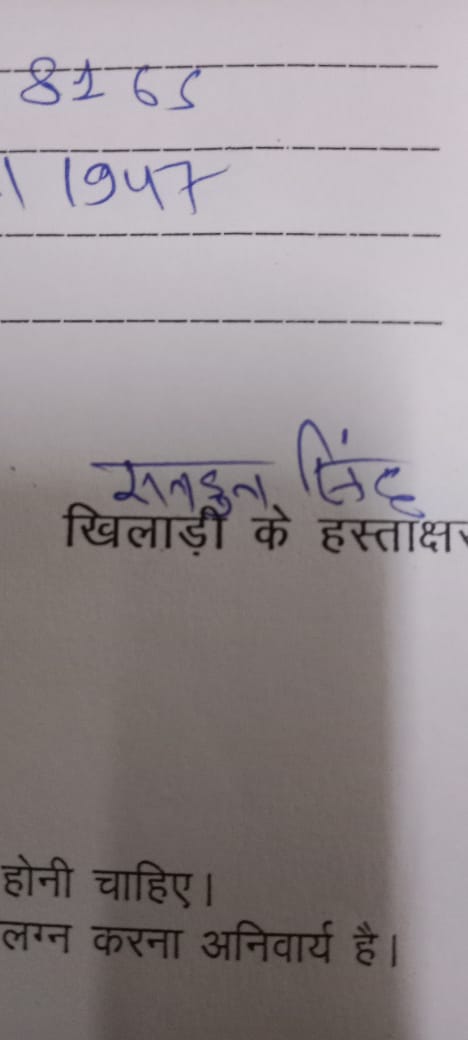 8165
1947
सिंह
खिलाड़ी के हस्ताक्षर
होनी चाहिए।
लग्न करना अनिवार्य है।